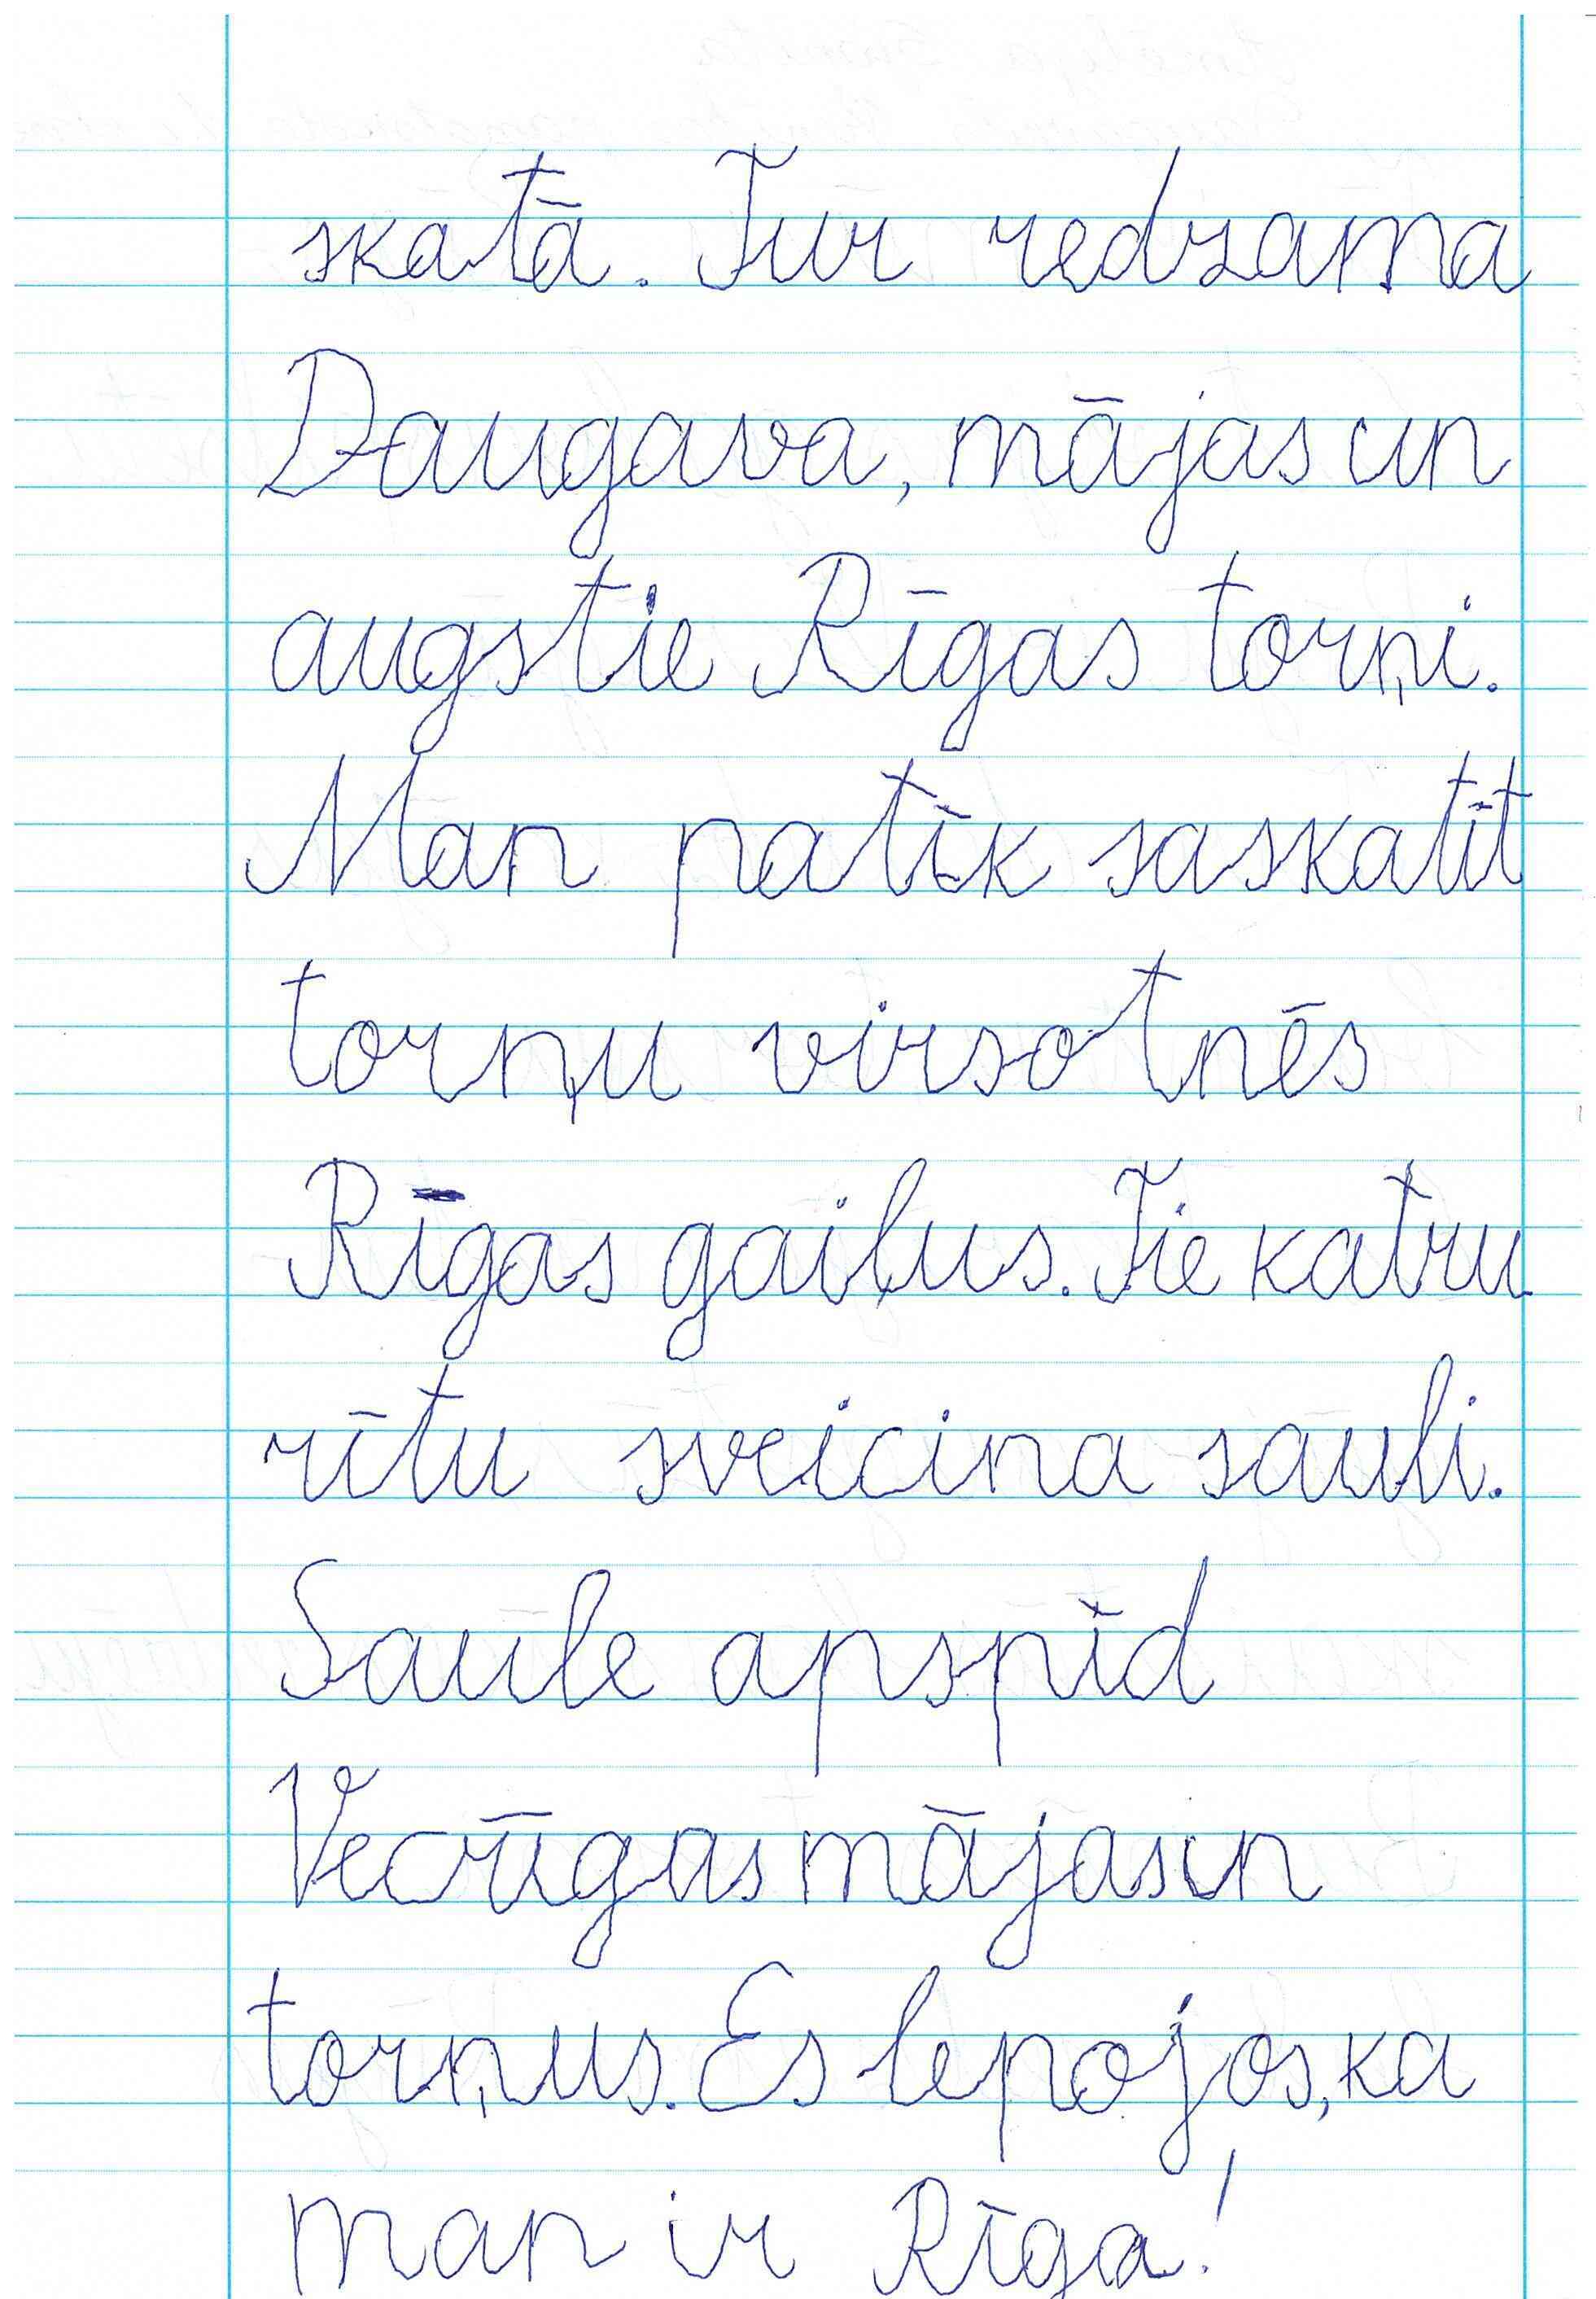 skatā. Tur redzama
Daugava, mājas un
augstie Rīgas torņi.
Man patīk saskatīt
torņu virsotnēs
Rīgas gaiļus. Tie katru
rītu sveicina sauli.
Saule apspīd
Vecrīgas mājas un
torņus. Es lepojos, ka
man ir Rīga!